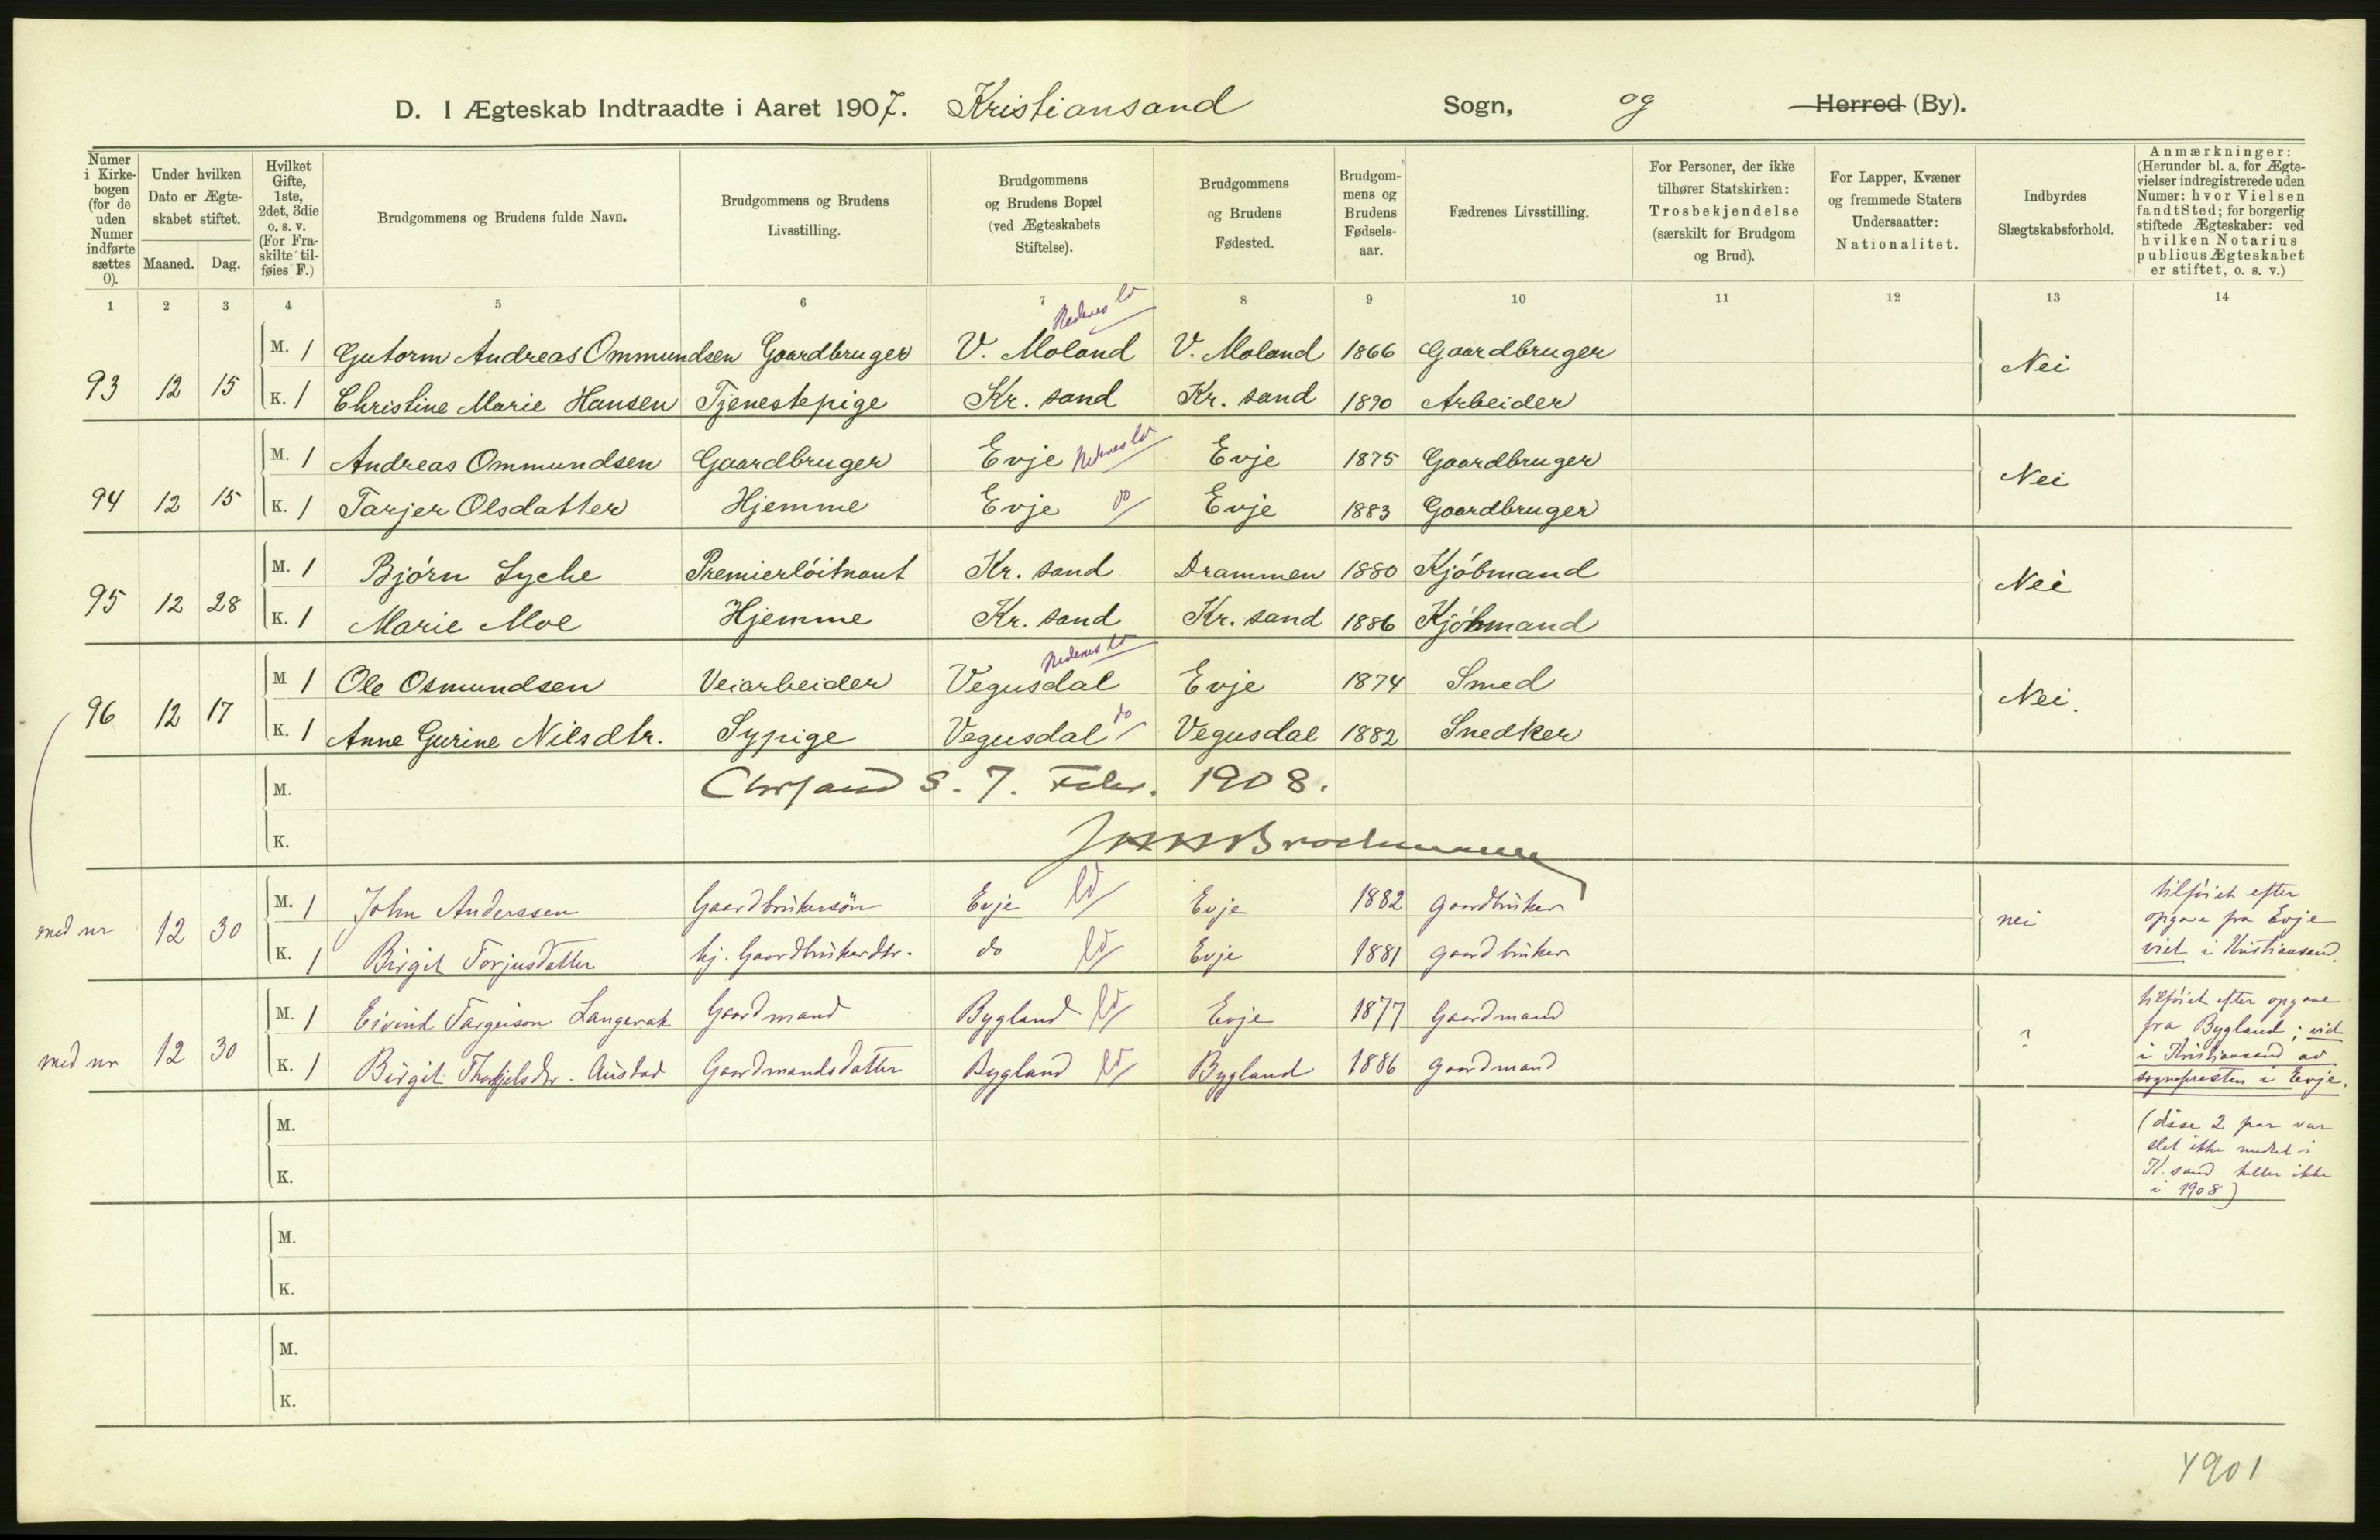 D. I Ægteskab Indtraadte i Aaret 1907. Kristiansand Sogn, og Herred (By).
Numer i Kirkebogen (for de uden Numer indførte sættes 0).
Under hvilken Dato er Ægteskabet stiftet.
Maaned. Dag.
Hvilket Gifte, 1ste, 2det, 3die o. s. v. (For Fraskilte tilføies F.)
Brudgommens og Brudens fulde Navn.
Brudgommens og Brudens Livsstilling.
Brudgommens og Brudens Bopæl (ved Ægteskabets Stiftelse).
Brudgommens og Brudens Fødested.
Brudgommens og Brudens Fødselsaar.
Fædrenes Livsstilling.
For Personer, der ikke tilhører Statskirken: Trosbekjendelse (særskilt for Brudgom og Brud).
For Lapper, Kvæner og fremmede Staters Undersaatter: Nationalitet.
Indbyrdes Slægtskabsforhold.
Anmærkninger: (Herunder bl. a. for Ægtevielser indregistrerede uden Numer: hvor Vielsen fandt Sted; for borgerlig stiftede Ægteskaber: ved hvilken Notarius publicus Ægteskabet er stiftet, o. s. v.)
1 2 3 4 5 6 7 8 9 10 11 12 13 14
Nedenes
M. 1 Gutorm Andreas Ommundsen Gaardbruger V. Moland V. Moland 1866 Gaardbruger
93 12 15 Nei
K. 1 Christine Marie Hansen Tjenestepige Kr. sand Kr. sand 1890 Arbeider
M. 1 Andreas Ommundsen Gaardbruger Evje Nedenes Evje 1875 Gaardbruger
94 12 15 Nei
K. 1 Tarjer Olsdatter Hjemme Evje do Evje 1883 Gaardbruger
M. 1 Bjórn Lyche Premierlóitnant Kr. sand Drammen 1880 Kjóbmand
95 12 28 Nei
K. 1 Marie Moe Hjemme Kr. sand Kr. sand 1886 Kjóbmand
Nedenes
M 1 Ole Osmundsen Veiarbeider Vegusdal Evje 1874 Smed
96 12 17 Nei.
K. 1 Anne Gurine Nilsdtr. Sypige Vegusdal do Vegusdal 1882 Snedker
M. Chrsand S. 7. Febr. 1908.
K. Brochmann
M. 1 John Anderssen Gaardbrukersön Evje Evje 1882 gaardbruker
med nr 12 30 nei
K. 1 Birgit Torjusdatter hj. Gaardbrukerdtr. do Evje 1881 gaardbruker
tilføiet efter
opgave fra Evje
viet i Kristiansand.
M. 1 Eivind Targeison Langerak Gaardmand Bygland Evje 1877 Gaardmand
med nr 12 30 ?
K. 1 Birgit Thorkjelsdtr. Austad Gaardmandsdatter Bygland Bygland 1886 gaardmand
tilføiet efter opgave
fra Bygland; viet
i Kristiansand av
sognepresten i Evje.
M.
K.
(disse 2 par var
slet ikke meldt i
K.sand heller ikke
i 1908)
M.
K.
M.
K.
4901